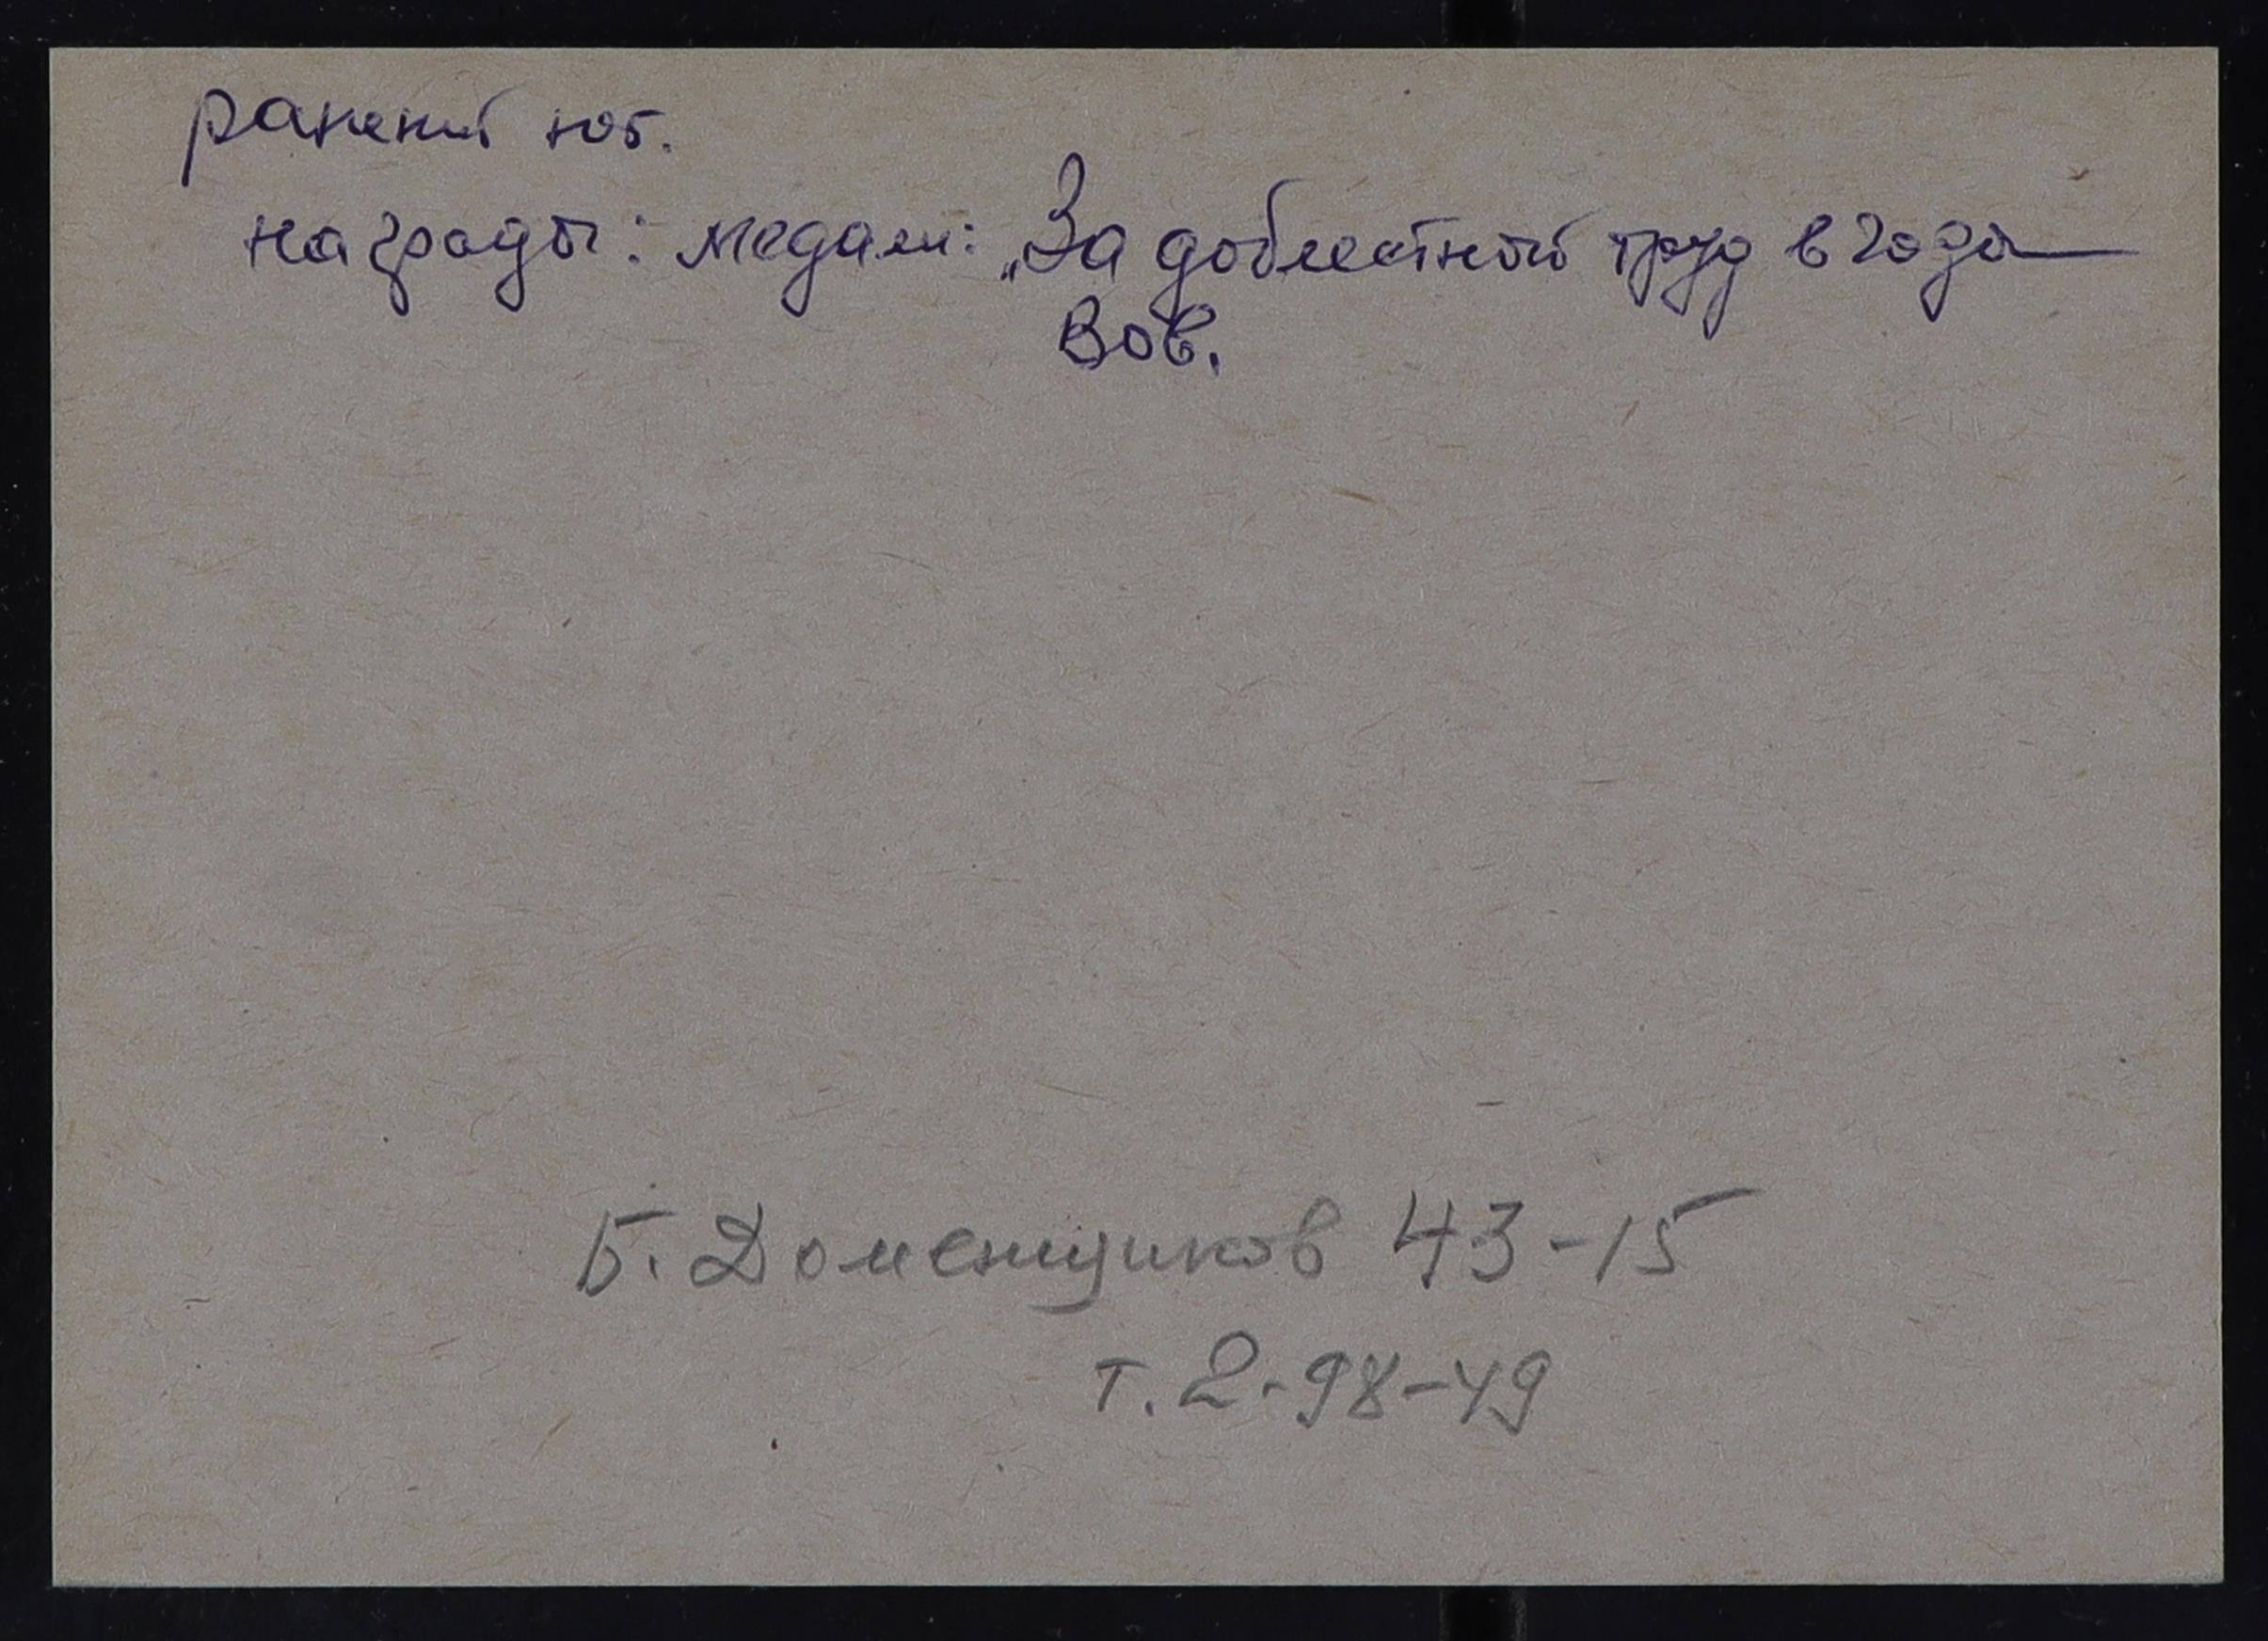 ранений
награды: медали: „За доблестный труд в годы
Вов.
Б. Доменщиков 43-15
т. 2-98-49